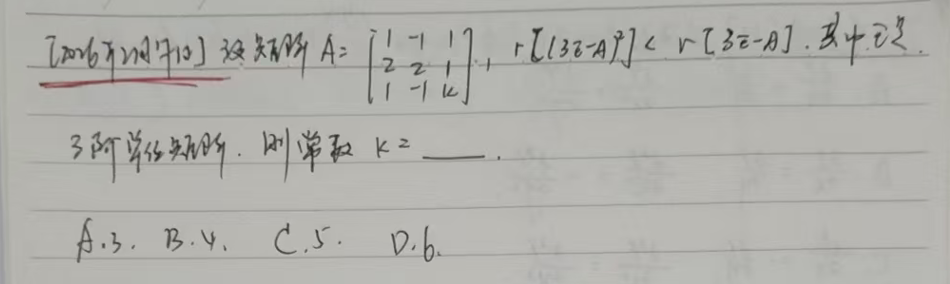 [2026年21日7(2)] 设矩阵 A= [1 -1 1; 2 2 1; 1 -1 k], r[(3E-A)²] < r[3E-A]. 其中E是
3阶单位矩阵. 则常数 k= ____.
A.3. B.4. C.5. D.6.